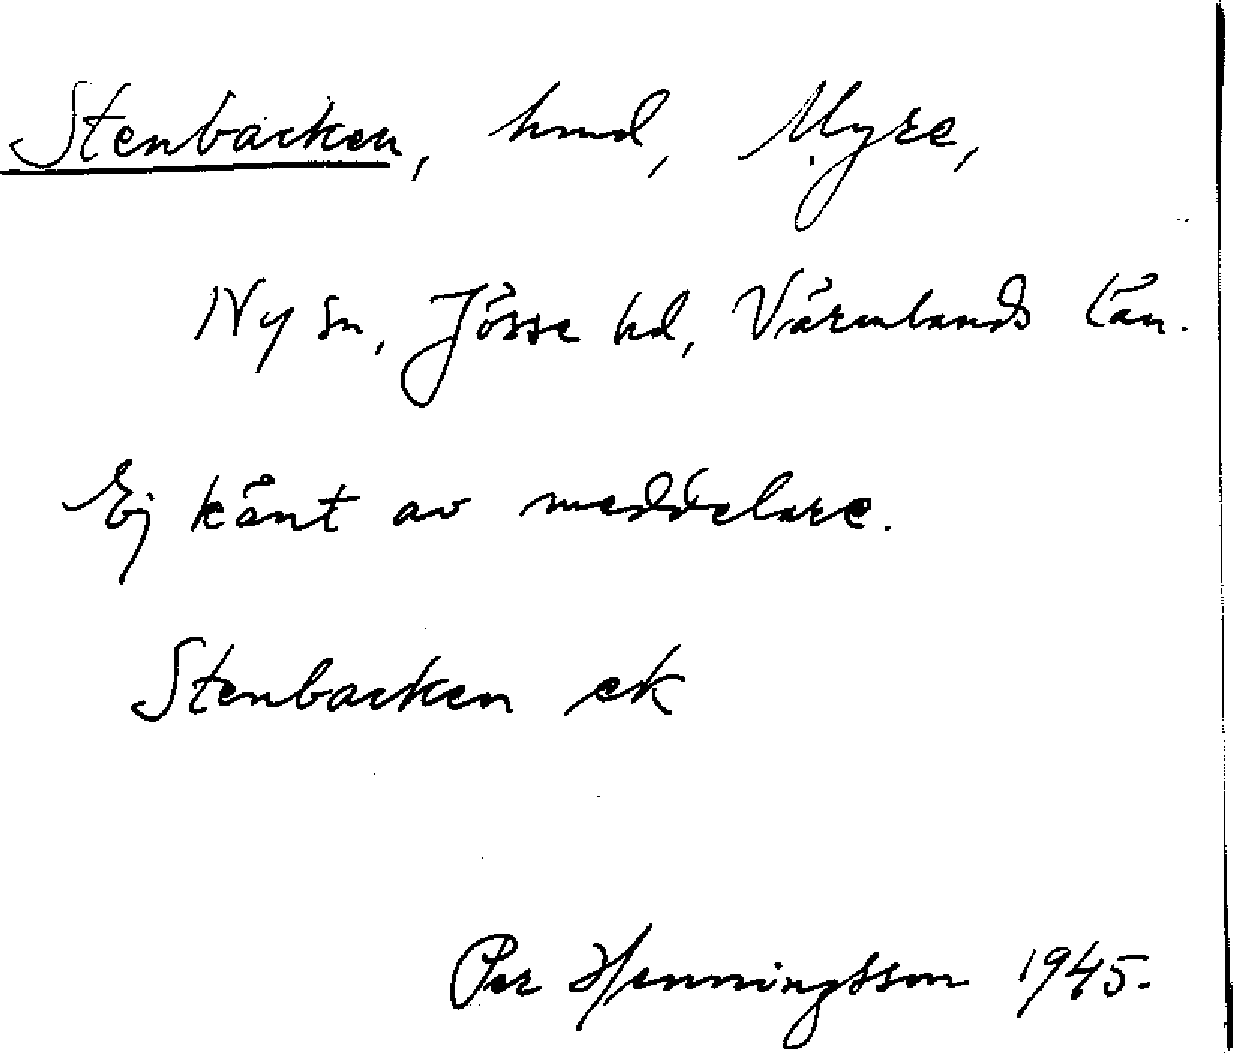 Stenbacken, hmd, Myre,
Ny sn, Jösse hd, Värmlands län.
Ej känt av meddelare.
Stenbacken ek
Per Henningsson 1945.